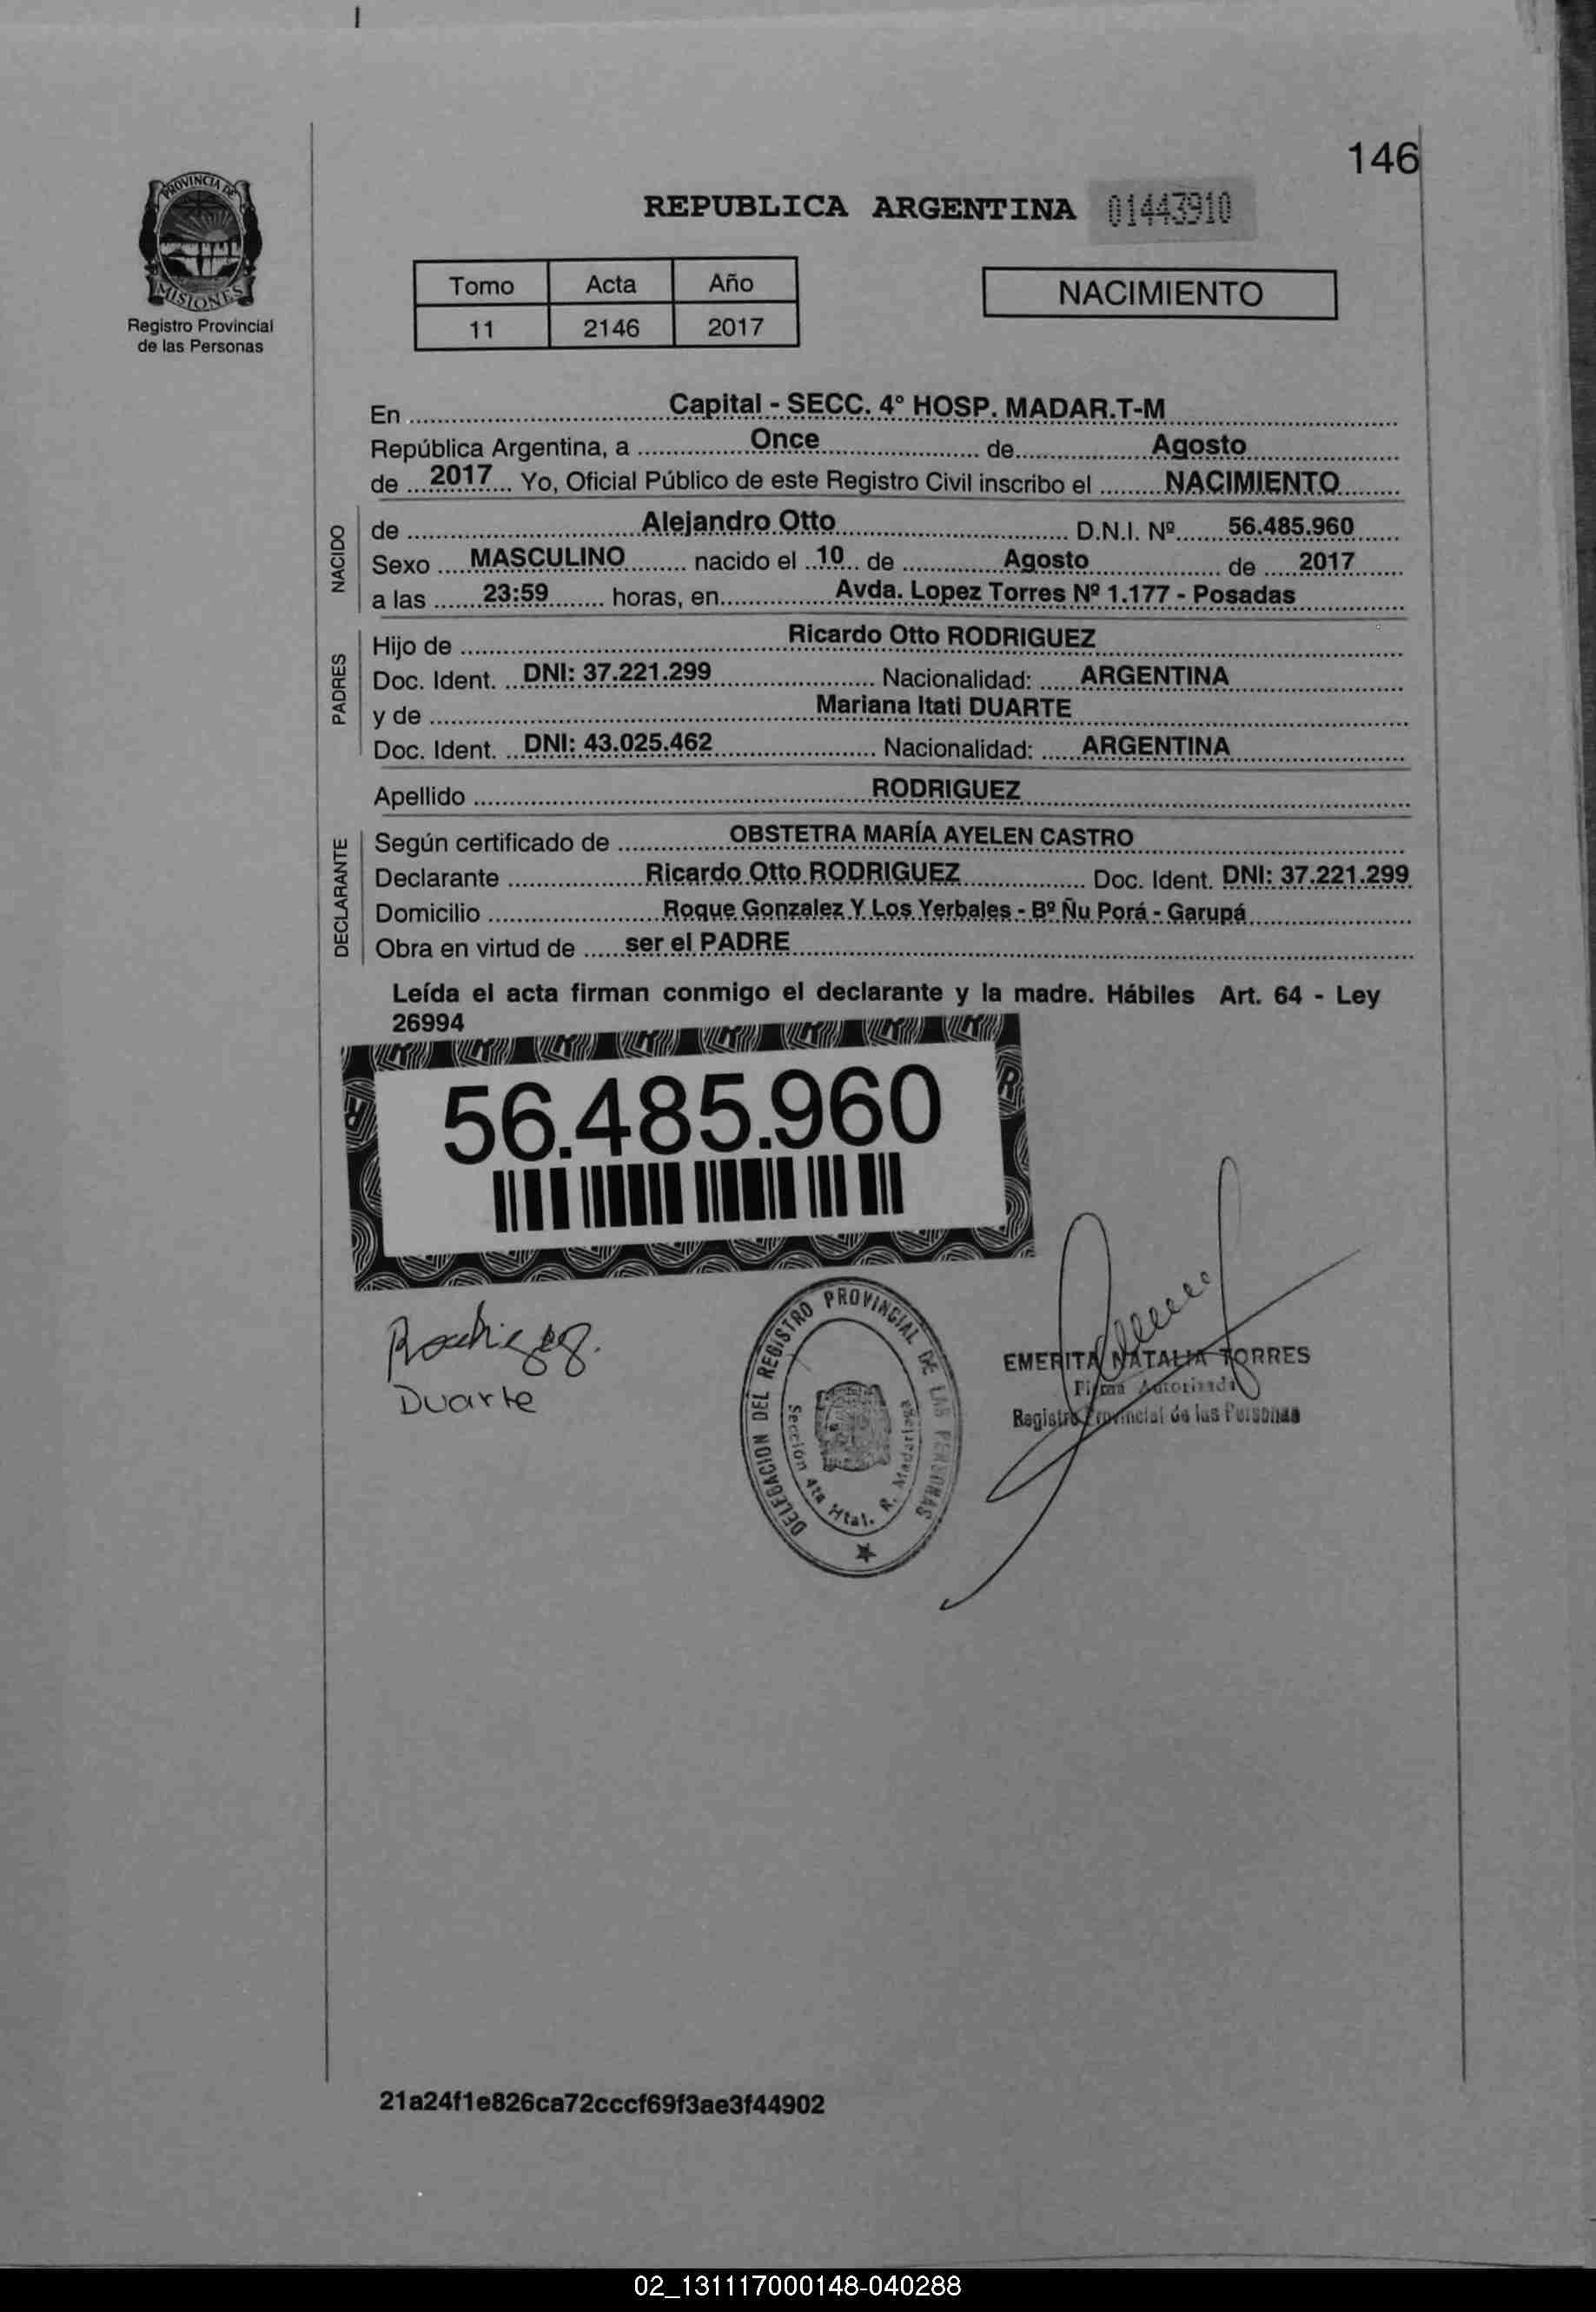 146
REPUBLICA ARGENTINA 01443910
PROVINCIA DE
MISIONES
Registro Provincial
de las Personas
Tomo Acta Año
11 2146 2017
NACIMIENTO
En Capital - SECC. 4° HOSP. MADAR.T-M
República Argentina, a Once de Agosto
de 2017 Yo, Oficial Público de este Registro Civil inscribo el NACIMIENTO
NACIDO
de Alejandro Otto D.N.I. Nº 56.485.960
Sexo MASCULINO nacido el 10 de Agosto de 2017
a las 23:59 horas, en Avda. Lopez Torres Nº 1.177 - Posadas
PADRES
Hijo de Ricardo Otto RODRIGUEZ
Doc. Ident. DNI: 37.221.299 Nacionalidad: ARGENTINA
y de Mariana Itati DUARTE
Doc. Ident. DNI: 43.025.462 Nacionalidad: ARGENTINA
Apellido RODRIGUEZ
DECLARANTE
Según certificado de OBSTETRA MARÍA AYELEN CASTRO
Declarante Ricardo Otto RODRIGUEZ Doc. Ident. DNI: 37.221.299
Domicilio Roque Gonzalez Y Los Yerbales - Bº Ñu Porá - Garupá
Obra en virtud de ser el PADRE
Leída el acta firman conmigo el declarante y la madre. Hábiles Art. 64 - Ley
26994
56.485.960
Rodriguez.
Duarte
DELEGACION DEL REGISTRO PROVINCIAL DE LAS PERSONAS
Sección 4ta Htal. R. Madariaga
EMERITA NATALIA TORRES
Firma Autorizada
Registro Provincial de las Personas
21a24f1e826ca72cccf69f3ae3f44902
02_131117000148-040288